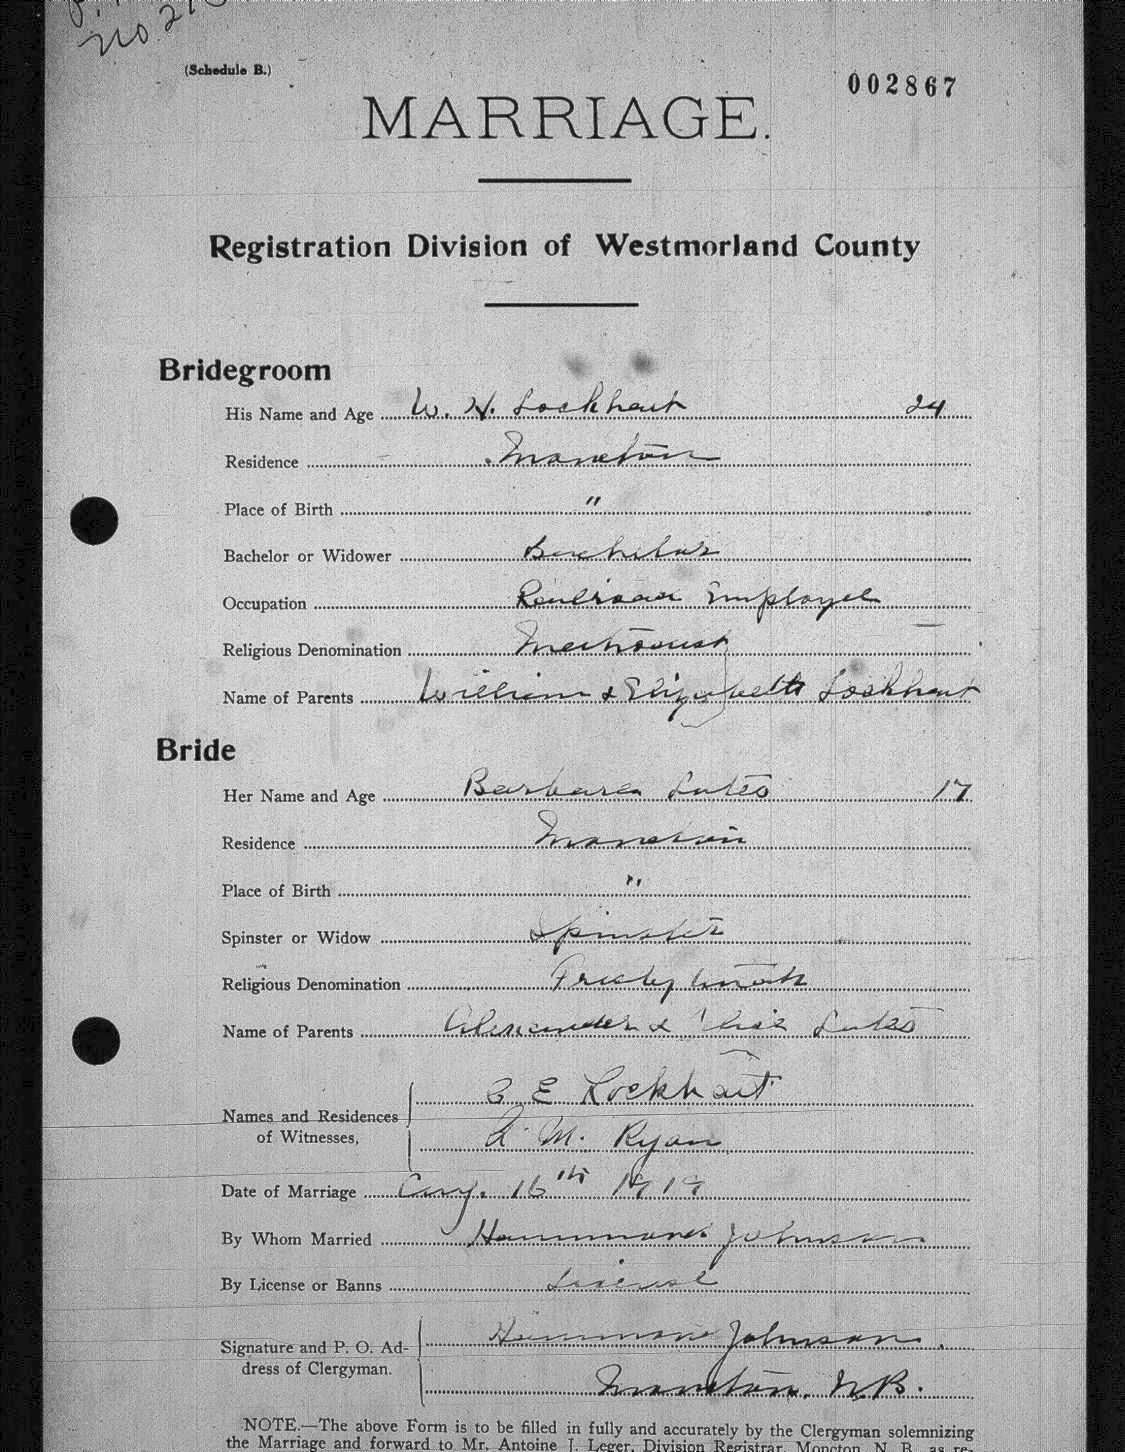 No 2
(Schedule B.)
002867
MARRIAGE.
Registration Division of Westmorland County
Bridegroom
His Name and Age W. H. Lockhart 24
Residence Moncton
Place of Birth "
Bachelor or Widower Bachelor
Occupation Railroad Employee
Religious Denomination Methodist
Name of Parents William & Elizabeth Lockhart
Bride
Her Name and Age Barbara Lutes 17
Residence Moncton
Place of Birth "
Spinster or Widow Spinster
Religious Denomination Presbyterian
Name of Parents Alexander & Lutes
C E Lockhart
Names and Residences
of Witnesses,
A. M. Ryan
Date of Marriage Aug. 16th 1919
By Whom Married Hammond Johnson
By License or Banns License
Signature and P. O. Ad- Hammond Johnson
dress of Clergyman.
Moncton, N.B.
NOTE.—The above Form is to be filled in fully and accurately by the Clergyman solemnizing
the Marriage and forward to Mr. Antoine J. Leger, Division Registrar, Moncton, N. B., as re-